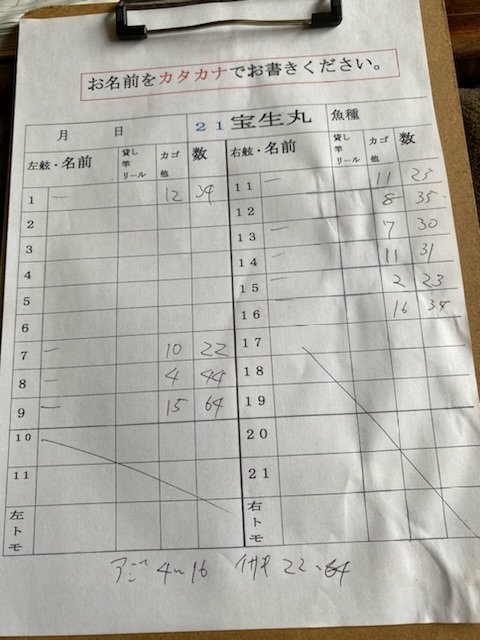 お名前をカタカナでお書きください。
月 日 21 宝生丸 魚種
左舷・名前 貸し竿リール カゴ他 数 右舷・名前 貸し竿リール カゴ他 数
1 一 12 34 11 一 11 23
2 12 8 35
3 13 一 7 30
4 14 一 11 31
5 15 一 2 23
6 16 一 16 34
7 一 10 22 17
8 一 4 44 18
9 一 15 64 19
10 20
11 21
左トモ 右トモ
アジ 4〜16 イサキ 22〜64